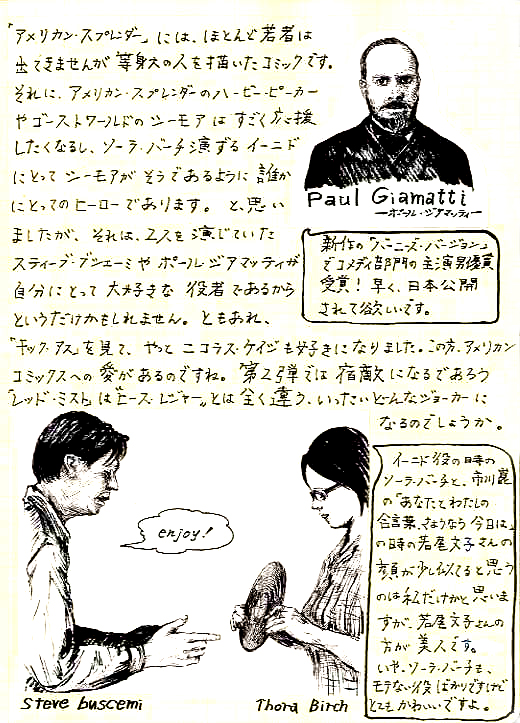 「アメリカン・スプレンダー」には、ほとんど若者は
出てきませんが等身大の人を描いたコミックです。
それに、アメリカン・スプレンダーのハービー・ピーカー
やゴーストワールドのシーモアはすごく応援
したくなるし、ソーラ・バーチ演ずるイーニド
にとってシーモアがそうであるように誰か
にとってのヒーローであります。と、思い
ましたが、それは、2人を演じていた
スティーブ・ブシェーミやポール・ジアマッティが
自分にとって大好きな役者であるから
というだけかもしれません。ともあれ、
「キック・アス」を見て、やっとニコラス・ケイジも好きになりました。この方、アメリカン
コミックスへの愛があるのですね。第2弾では宿敵になるであろう
「レッド・ミスト」は"ヒース・レジャー"とは全く違う、いったいどんなジョーカーに
なるのでしょうか。
Paul Giamatti
ーポール・ジアマッティー
新作の「バーニーズ・バージョン」
でコメディ部門の主演男優賞
受賞！早く、日本公開
されて欲しいです。
enjoy!
イーニド役の時の
ソーラ・バーチと、市川崑
の「あなたとわたしの
合言葉、さようなら今日は」
の時の若尾文子さんの
顔が少し似てると思う
のは私だけかと思いま
すが、若尾文子さんの
方が美人です。
いや、ソーラ・バーチも、
モテない役ばかりですけど
とてもかわいいですよ。
Steve buscemi
Thora Birch